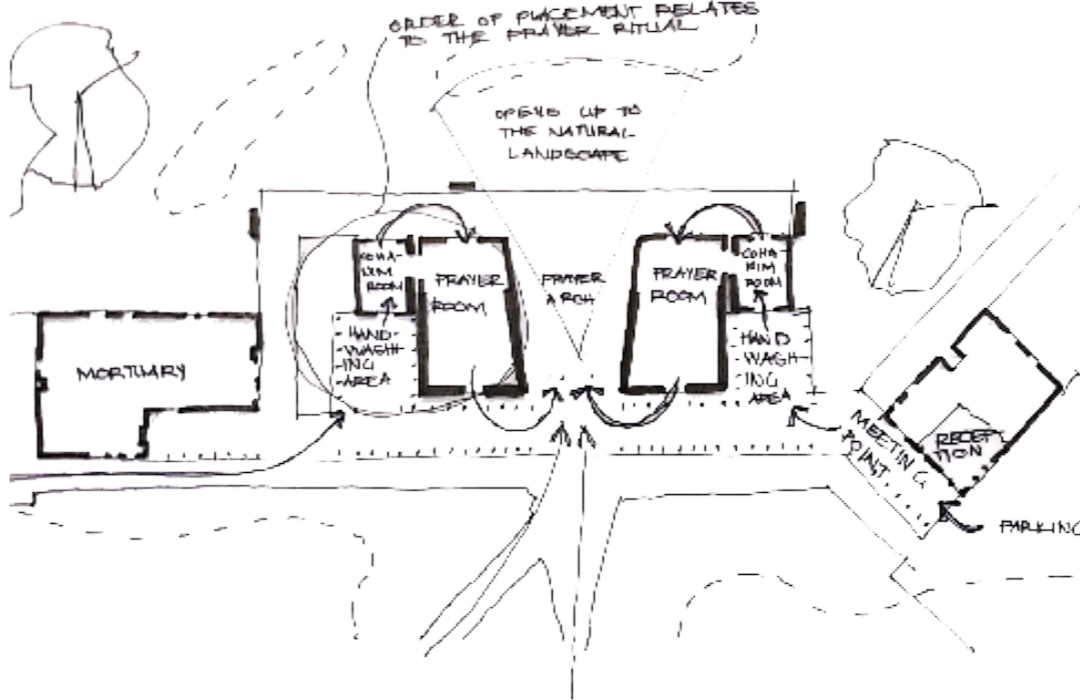 ORDER OF PLACEMENT RELATES
TO THE PRAYER RITUAL
OPENS UP TO
THE NATURAL
LANDSCAPE
COHA-
NIM
ROOM
PRAYER
ROOM
PRAYER
ARCH
PRAYER
ROOM
COHA-
NIM
ROOM
HAND-
WASH-
ING
AREA
HAND
WASH-
ING
AREA
MORTUARY
MEETING
POINT
RECEP
TION
PARKING